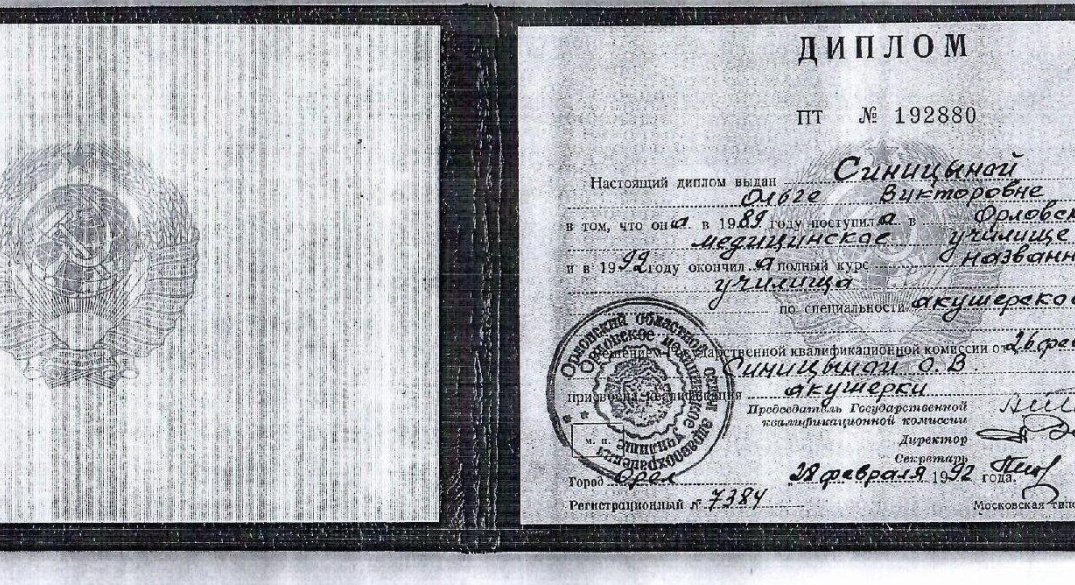 ДИПЛОМ
ПТ № 192880
Настоящий диплом выдан Синицыной
Ольге Викторовне
в том, что она в 1989 году поступила в Орловск
медицинское училище
и в 1992 году окончила полный курс названн
училища
по специальности акушерское
решением Государственной квалификационной комиссии от 26 фев
Синицыной О. В.
присвоена квалификация акушерки
Председатель Государственной
квалификационной комиссии
Директор
Секретарь
Орловский областной отдел здравоохранения
Орловское медицинское училище
М. П.
Город Орел 28 февраля 1992 года.
Регистрационный № 7384
Московская типо